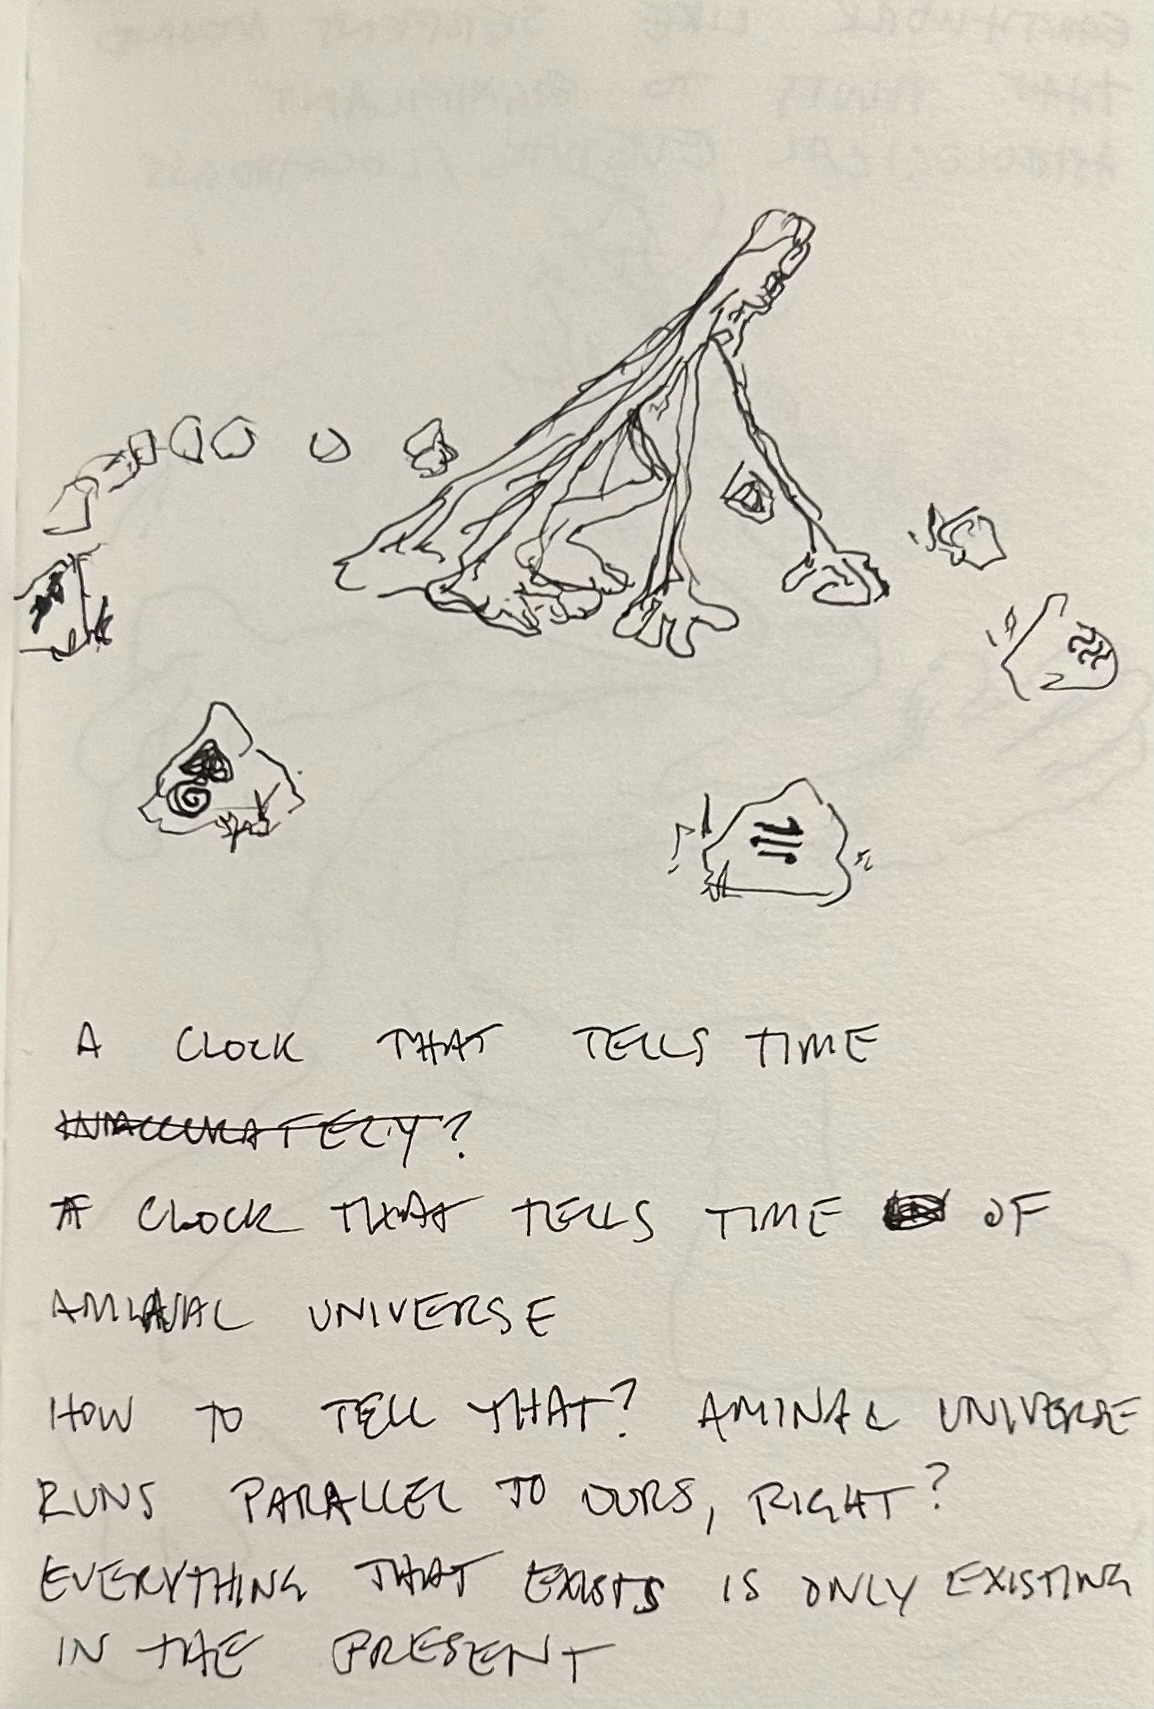 A CLOCK THAT TELLS TIME
INACCURATELY?
A CLOCK THAT TELLS TIME OF
AMINAL UNIVERSE
HOW TO TELL THAT? AMINAL UNIVERSE
RUNS PARALLEL TO OURS, RIGHT?
EVERYTHING THAT EXISTS IS ONLY EXISTING
IN THE PRESENT